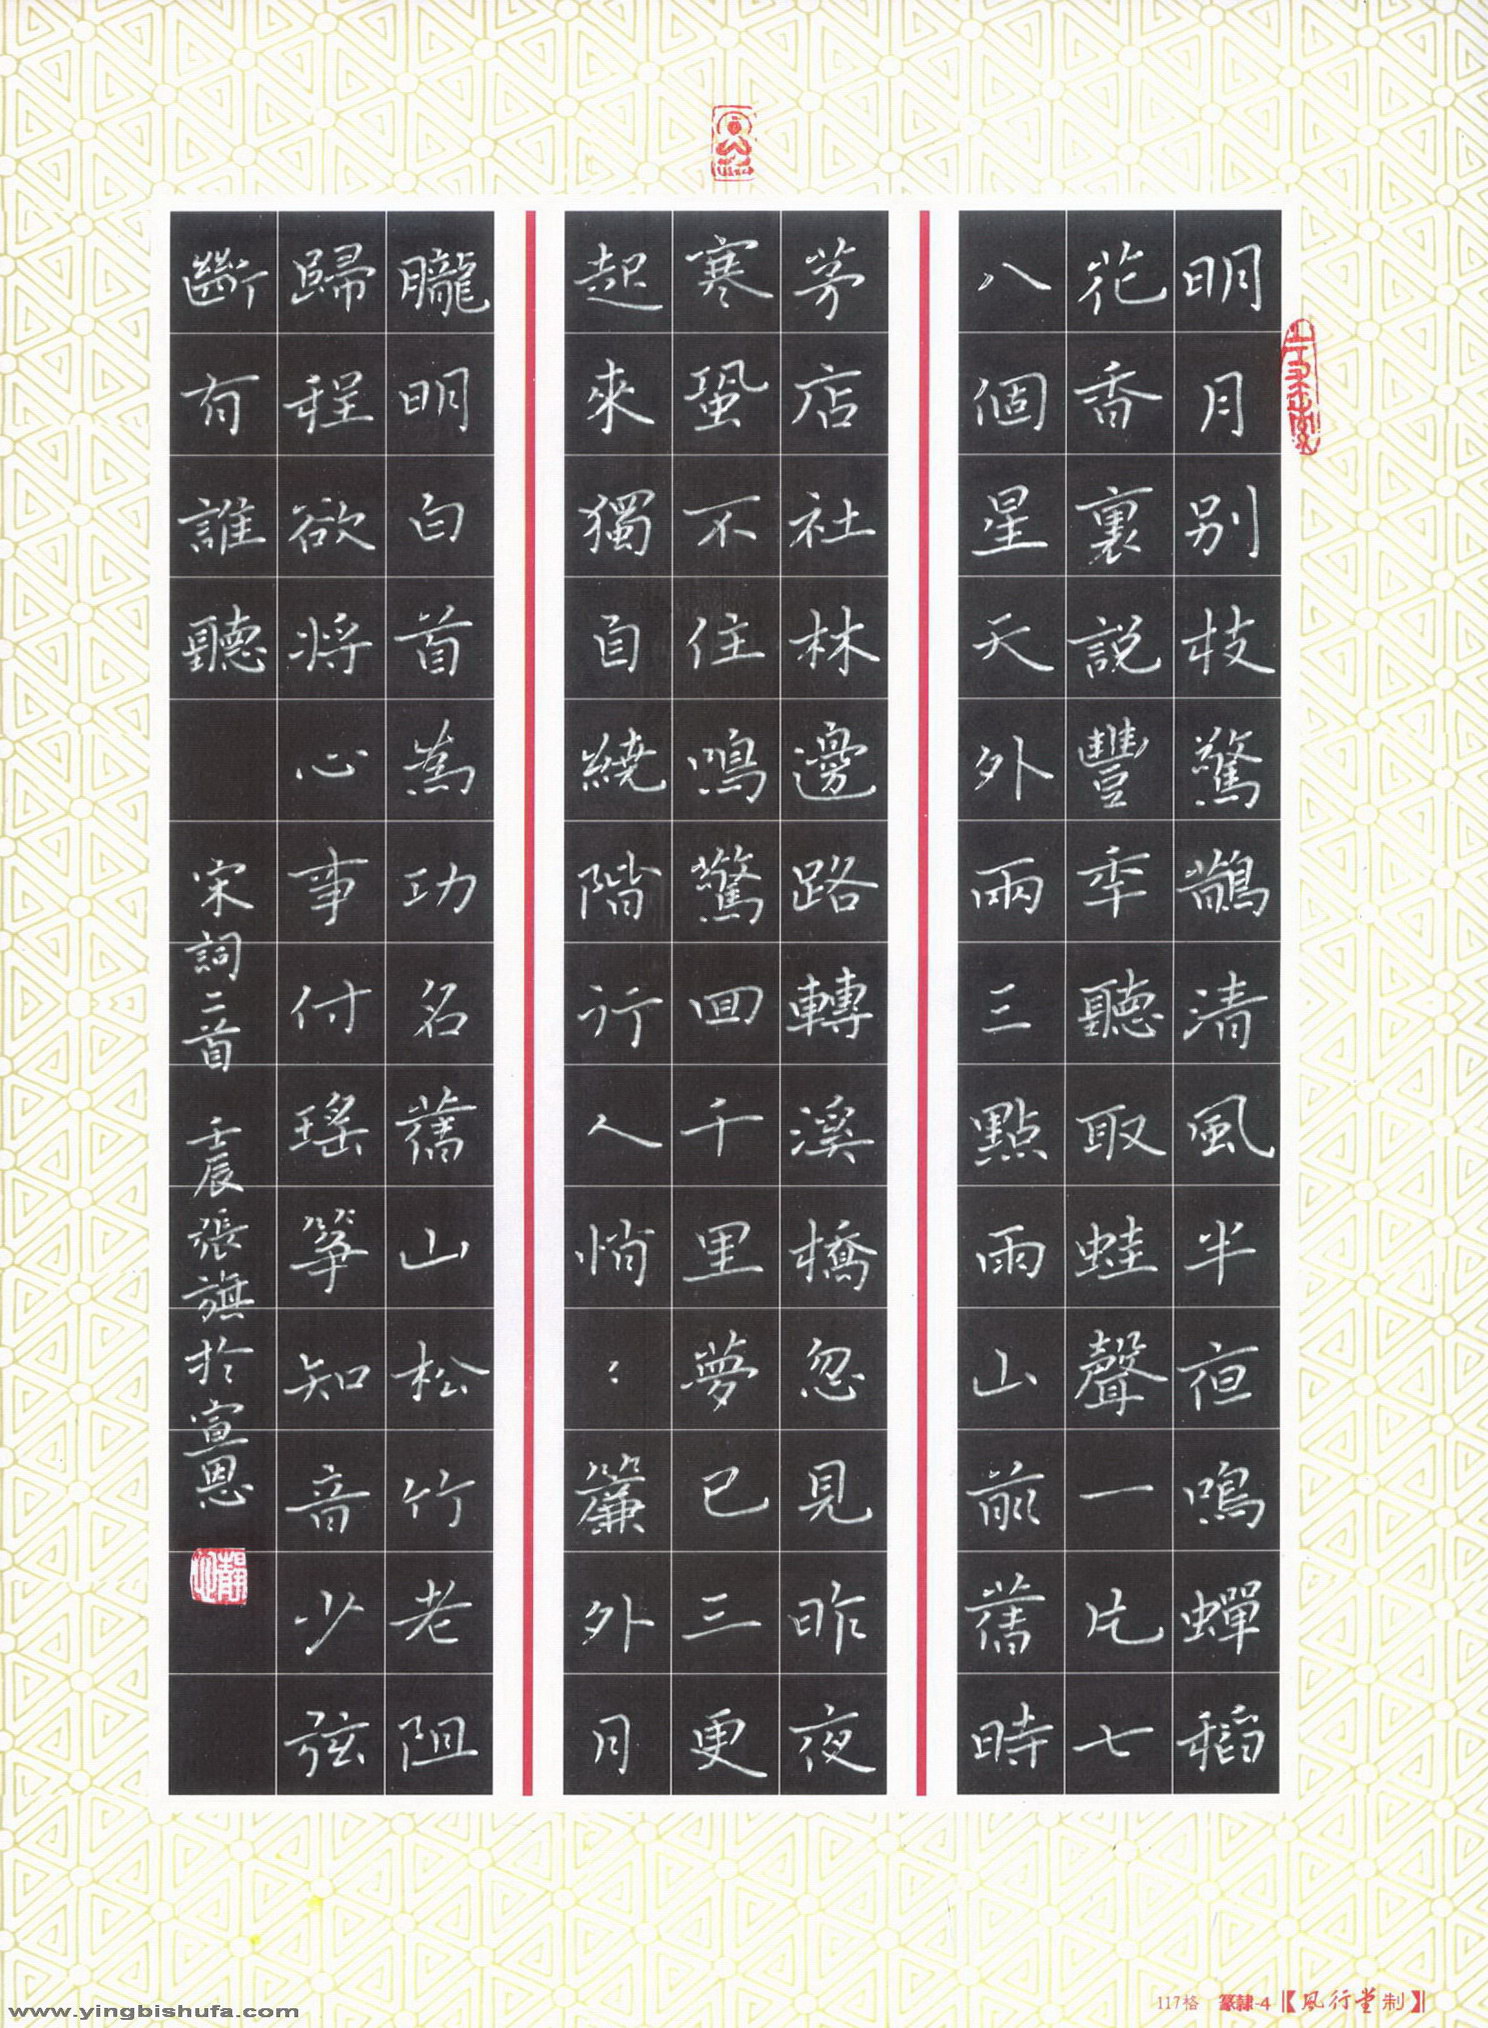 明月别枝驚鵲清風半夜鳴蟬稻
花香裏説豐年聽取蛙聲一片七
八個星天外兩三點雨山前舊時
茅店社林邊路轉溪橋忽見昨夜
寒蛩不住鳴驚回千里夢已三更
起來獨自繞階行人悄〻簾外月
朧明白首爲功名舊山松竹老阻
歸程欲將心事付瑤箏知音少弦
斷有誰聽
宋詞二首 壬辰張旗於宣恩
117格 篆隸-4【風行堂制】
www.yingbishufa.com